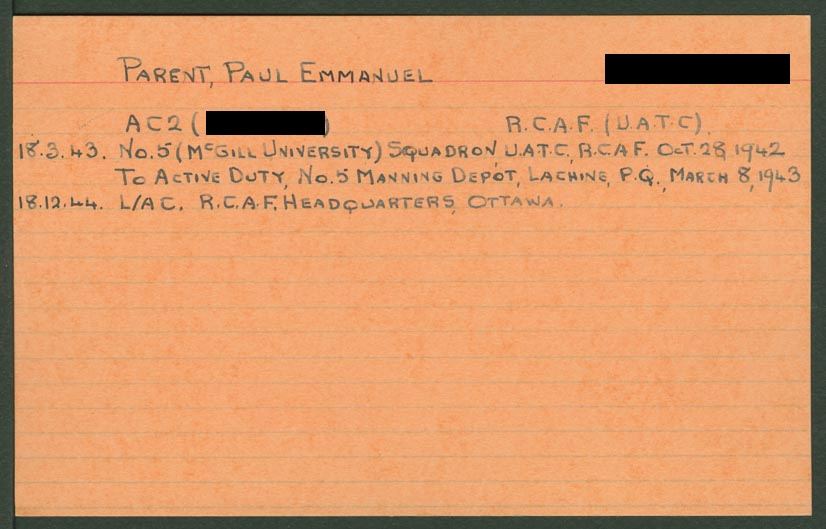 PARENT, PAUL EMMANUEL
AC2 ( ) R.C.A.F. (U.A.T.C).
18.3.43. No.5 (McGILL UNIVERSITY) SQUADRON, U.A.T.C., R.C.A.F. OCT. 28, 1942
TO ACTIVE DUTY, No.5 MANNING DEPOT, LACHINE, P.Q., MARCH 8, 1943
18.12.44. L/AC. R.C.A.F. HEADQUARTERS, OTTAWA.